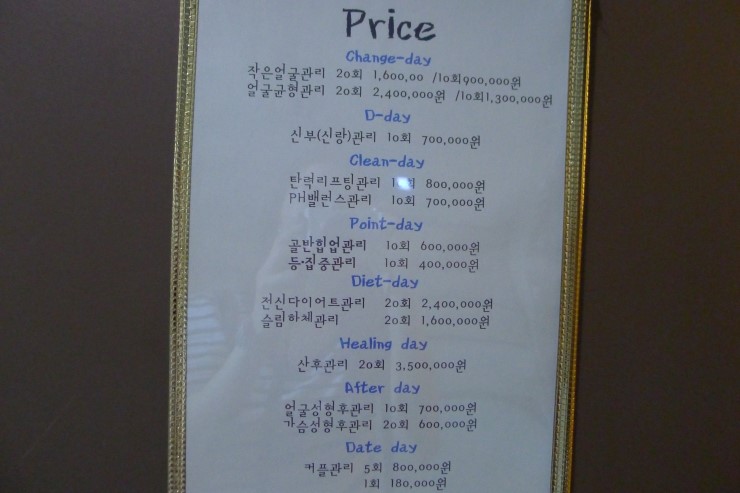 Price
Change-day
작은얼굴관리 20회 1,600,00 /10회900,000원
얼굴균형관리 20회 2,400,000원 /10회1,300,000원
D-day
신부(신랑)관리 10회 700,000원
Clean-day
탄력리프팅관리 800,000원
PH밸런스관리 10회 700,000원
Point-day
골반힙업관리 10회 600,000원
등·집중관리 10회 400,000원
Diet-day
전신다이어트관리 20회 2,400,000원
슬림하체관리 20회 1,600,000원
Healing day
산후관리 20회 3,500,000원
After day
얼굴성형후관리 10회 700,000원
가슴성형후관리 20회 600,000원
Date day
커플관리 5회 800,000원
1회 180,000원